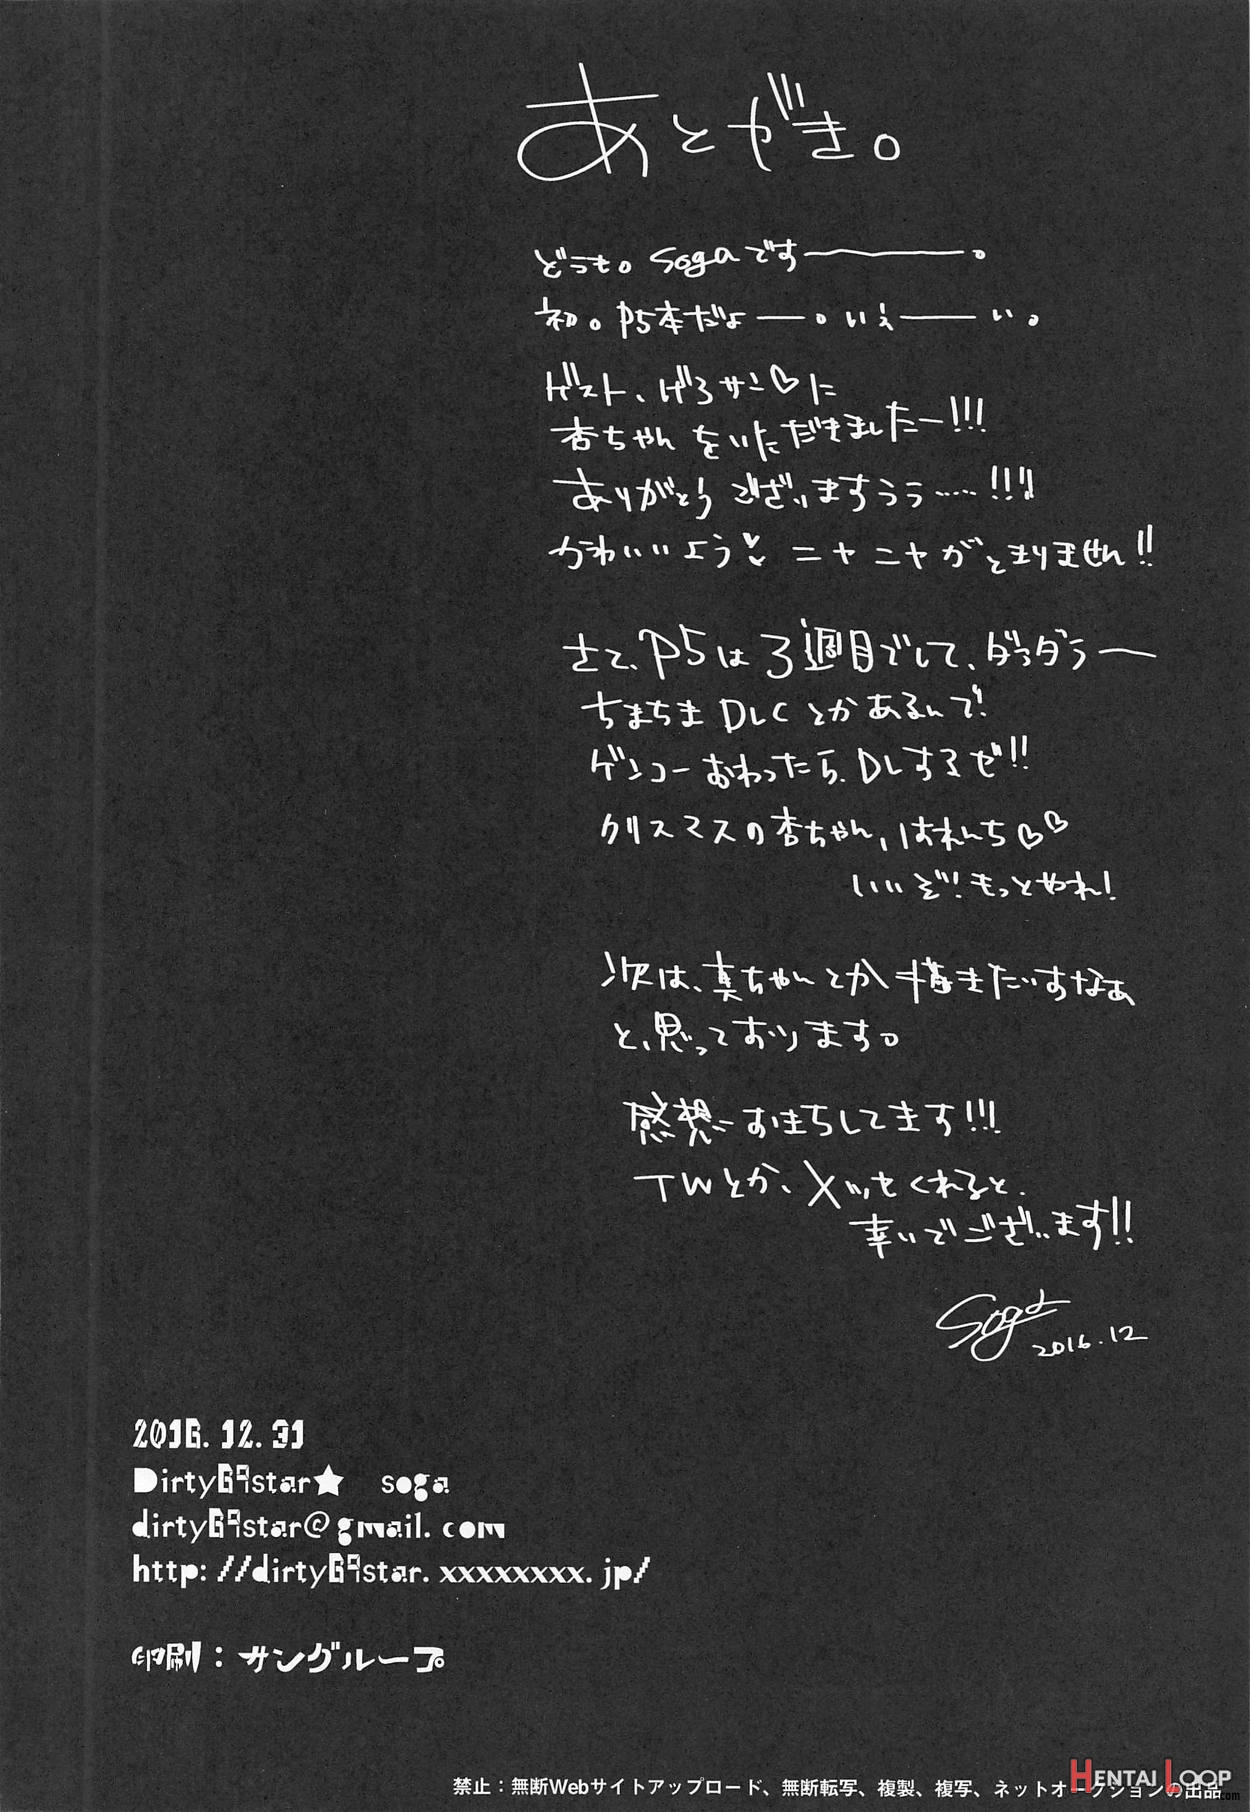 あとがき。
どうも。sogaです――――。
初。P5本だよ――。いえ――い。
ゲスト、げろサン♡に
杏ちゃんをいただきましたー!!!
ありがとうございますうぅ……!!!
かわいいよう♡ ニヤニヤがとまりません!!
さて、P5は3週目でして、ダラダラ―
ちまちまDLCとかあるんで!
ゲンコーおわったら、DLするぜ!!
クリスマスの杏ちゃん、はれんち♡♡
いいぞ!もっとやれ!
次は、真ちゃんとか描きたいすなぁ
と、思っております。
感想おまちしてます!!!
TWとか、メッセくれると、
幸いでございます!!
Soga
2016.12
2016.12.31
Dirty69star★ soga
dirty69star@gmail.com
http://dirty69star.xxxxxxxx.jp/
印刷：サングループ
禁止：無断Webサイトアップロード、無断転写、複製、複写、ネットオークションの出品
HENTAI LOOP
.com